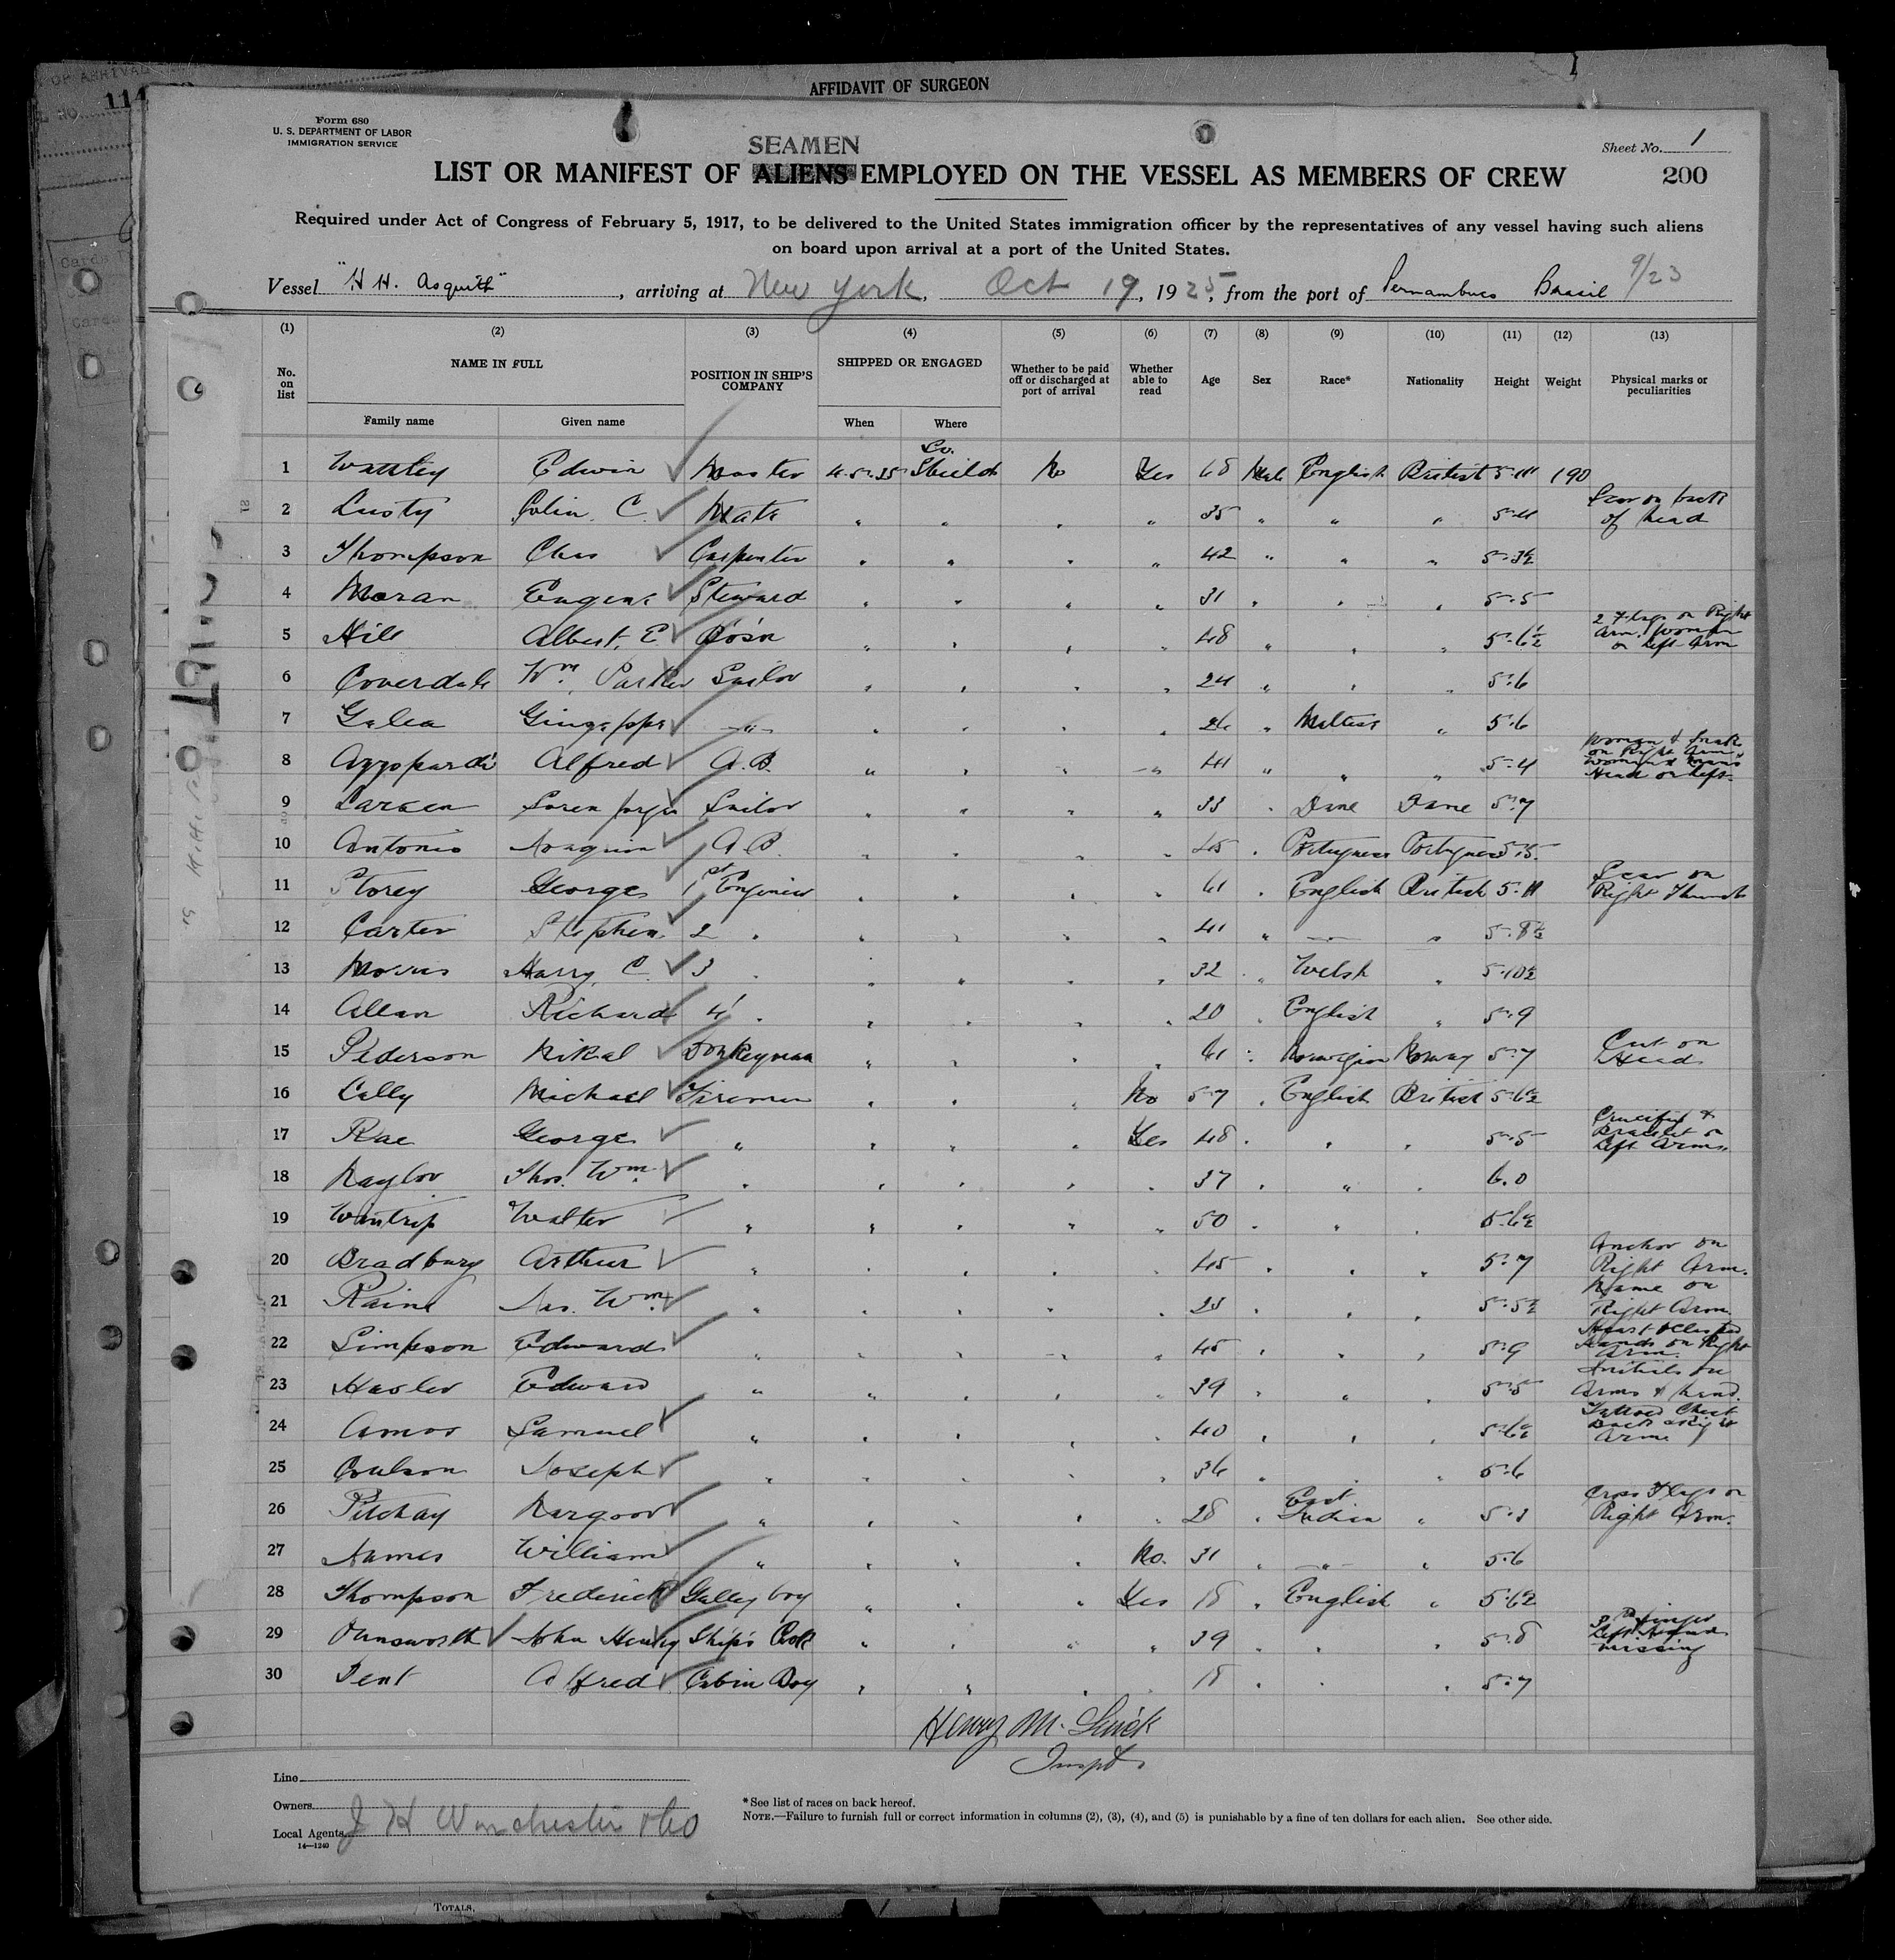 AFFIDAVIT OF SURGEON
Form 680
U. S. DEPARTMENT OF LABOR
IMMIGRATION SERVICE
SEAMEN
Sheet No. 1
LIST OR MANIFEST OF ALIENS EMPLOYED ON THE VESSEL AS MEMBERS OF CREW
200
Required under Act of Congress of February 5, 1917, to be delivered to the United States immigration officer by the representatives of any vessel having such aliens
on board upon arrival at a port of the United States.
Vessel "H H. Asquith", arriving at New York, Oct 19, 1925, from the port of Pernambuco Brasil 9/23
(1) (2) (3) (4) (5) (6) (7) (8) (9) (10) (11) (12) (13)
No. on list NAME IN FULL POSITION IN SHIP'S COMPANY SHIPPED OR ENGAGED Whether to be paid off or discharged at port of arrival Whether able to read Age Sex Race* Nationality Height Weight Physical marks or peculiarities
Family name Given name When Where
1 Edwin Master So. Shields No Yes 48 Male English British 5.11 190
2 Lusty Colin C. Mate " " " " 35 " " " 5.11 Scar on back of head
3 Thompson Chas Carpenter " " " " 42 " " " 5.3½
4 Moran Eugene Steward " " " " 31 " " " 5.5
5 Hill Albert. E Bosn " " " " 48 " " " 5.6½ 2 Flags on Right Arm. Woman on Left Arm
6 Coverdale Wm. Parker Sailor " " " " 24 " " " 5.6
7 Galea " " " " " 26 " Maltese " 5.6
8 Azzopardi Alfred A.B. " " " " 41 " " " 5.4 Woman & Snake on Right Arm Head on Left
9 Larsen Soren Sailor " " " " 33 " Dane Dane 5.7
10 Antonio Joaquin A.B. " " " " 45 " Portuguese Portuguese 5.5
11 Storey George 1st Engineer " " " " 61 " English British 5.11 Scar on Right Thumb
12 Carter Stephen 2 " " " " " 41 " " " 5.8½
13 Morris Harry C. 3 " " " " " 32 " Welsh " 5.10½
14 Allan Richard 4 " " " " " 20 " English " 5.9
15 Pederson Mikal Donkeyman " " " " 61 " Norwegian Norway 5.7 Cut on Head
16 Lally Michael Fireman " " " No 57 " English British 5.6½
17 Rae George " " " " Yes 48 " " " 5.5 Crucifix & Bracelet on Left Arm
18 Naylor Thos. Wm. " " " " " 37 " " " 6.0
19 Wintrip Walter " " " " " 50 " " " 5.6½
20 Bradbury Arthur " " " " " 45 " " " 5.7 Anchor on Right Arm.
21 Raine Jas. Wm. " " " " " 23 " " " 5.5½ Name on Right Arm.
22 Simpson Edward " " " " " 45 " " " 5.9 Heart & Clasped Hands on Right Arm.
23 Hasler Edward " " " " " 39 " " " 5.5 Initials on Arms & hand.
24 Amos Samuel " " " " " 40 " " " 5.6½ Tattoed Chest Back & Right Arm
25 Coulson Joseph " " " " " 36 " " " 5.6
26 Pitchay " " " " " 28 " East Indian " 5.3 Cross Flags on Right Arm.
27 James William " " " " No. 31 " " " 5.6
28 Thompson Frederick Galley boy " " " Yes 18 " English " 5.6½
29 John Henry Ship's Cook " " " " 39 " " " 5.8 Left Hand missing
30 Dent Alfred Cabin Boy " " " " 18 " " " 5.7
Inspt.
Line
Owners
Local Agents J H Winchester & Co
14—1240
*See list of races on back hereof.
NOTE.—Failure to furnish full or correct information in columns (2), (3), (4), and (5) is punishable by a fine of ten dollars for each alien. See other side.
TOTALS,